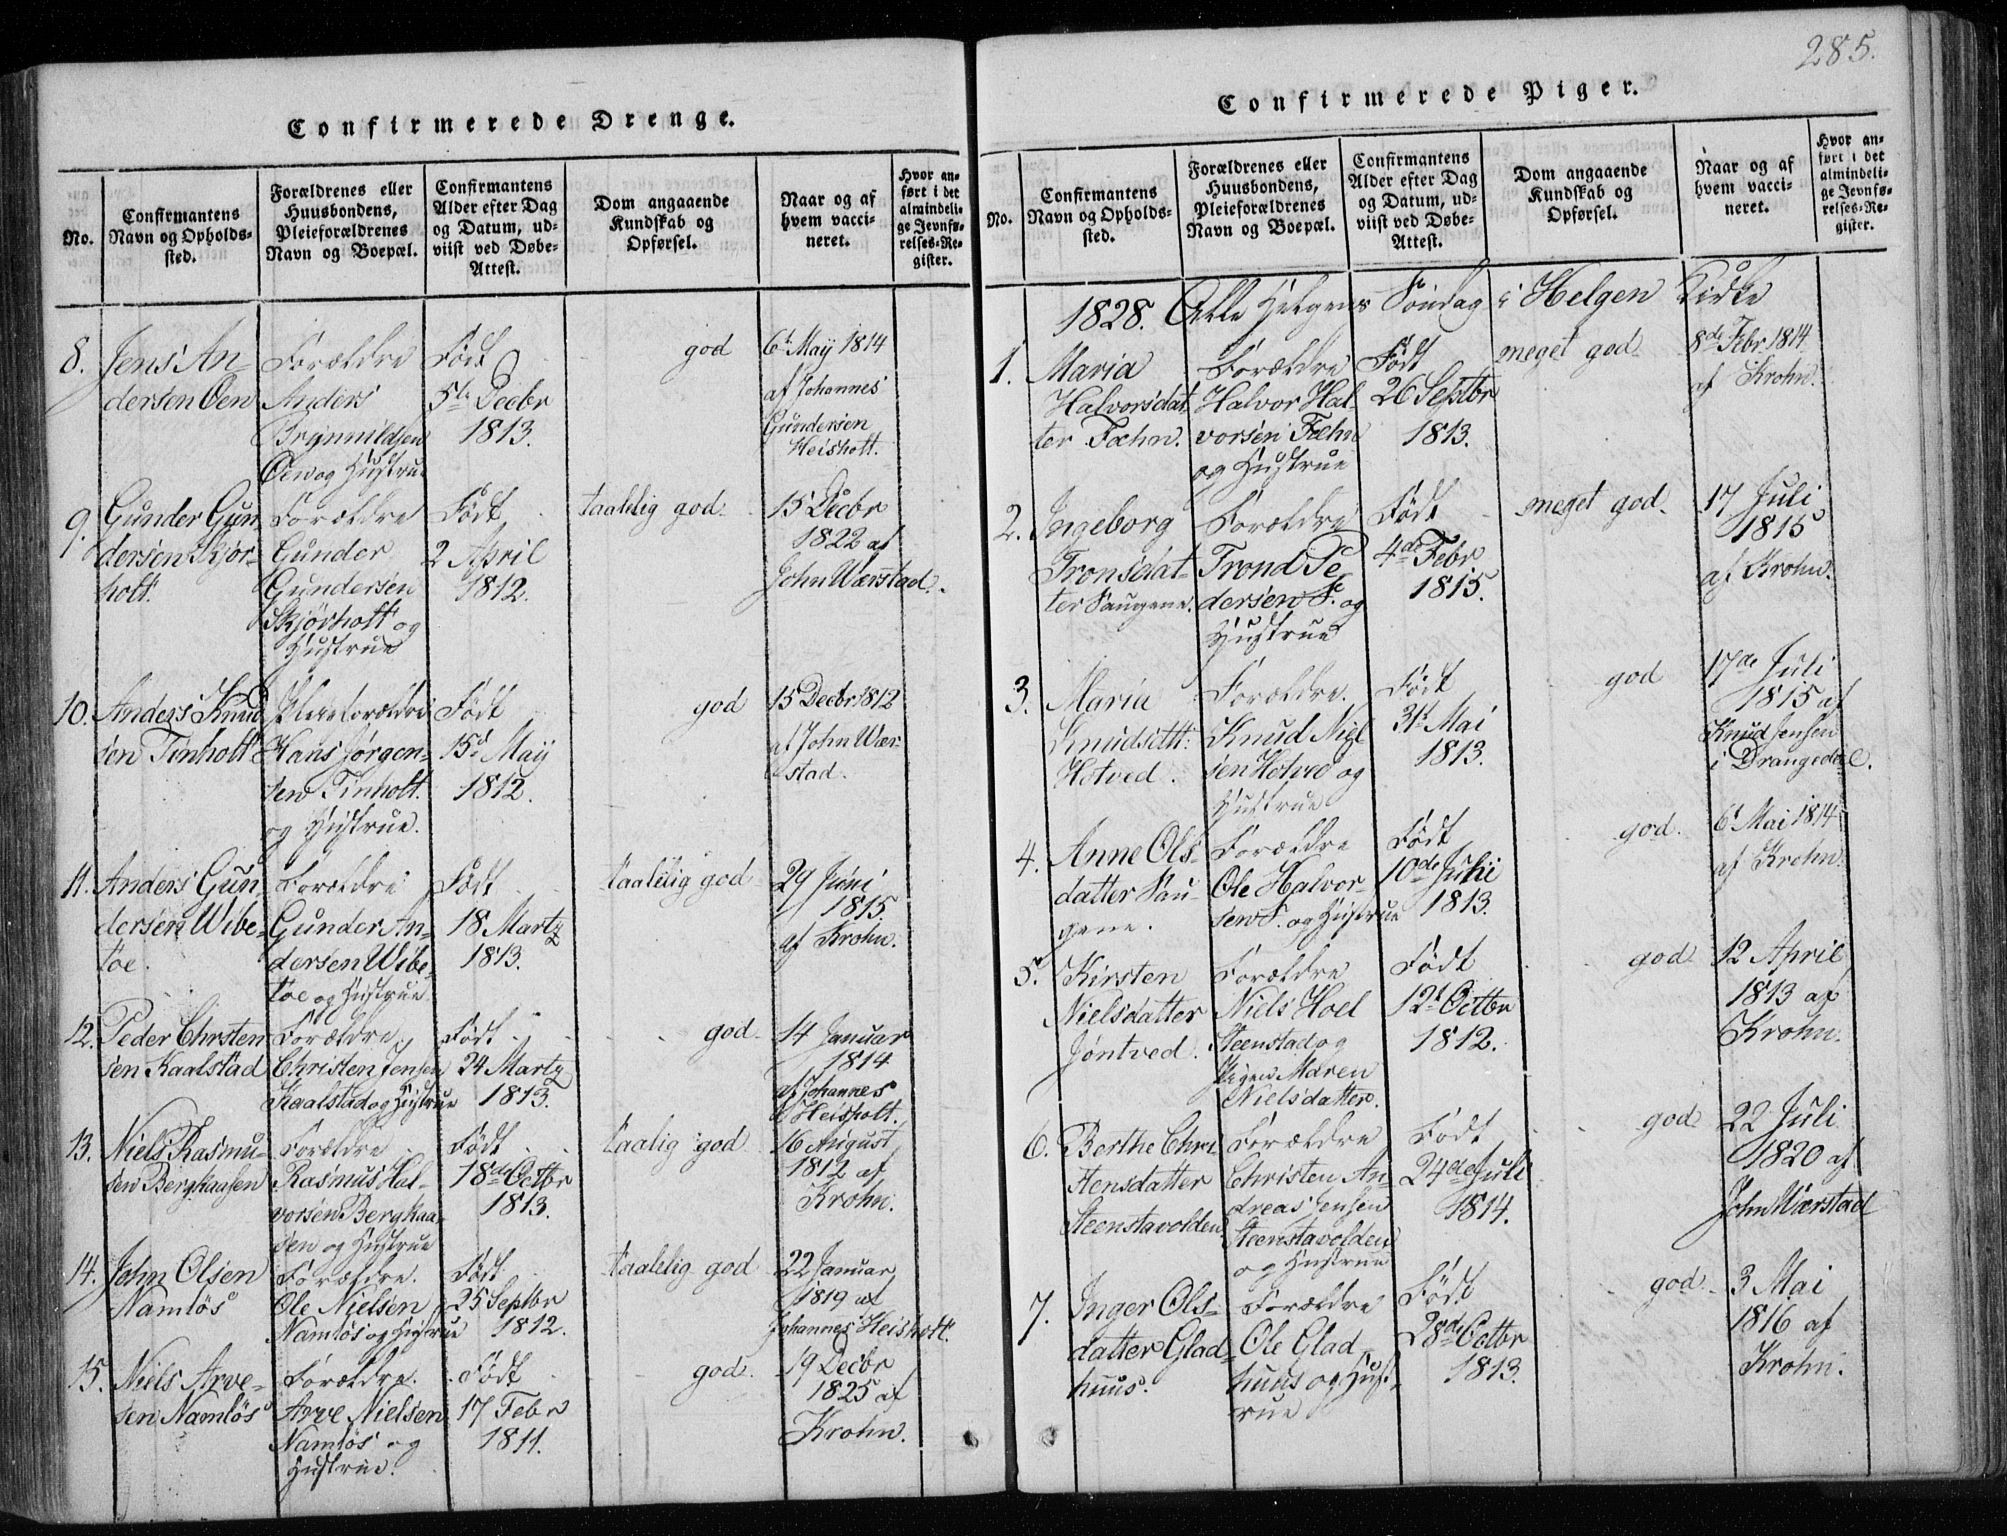 Confirmerede Drenge.
No.
Confirmantens
Navn og Opholds-
sted.
Forældrenes eller
Huusbondens,
Pleieforældrenes
Navn og Boepæl.
Confirmantens
Alder efter Dag
og Datum, ud-
viist ved Døbe-
Attest.
Dom angaaende
Kundskab og
Opførsel.
Naar og af
hvem vacci-
neret.
Hvor an-
ført i det
almindeli-
ge Jevnfø-
relses-Re-
gister.
8.
Jens An-
dersen Oen
Forældre
Anders
Brynnildsen
Oen og Hustrue
Født
5te Decbr
1813.
god
6t Maij 1814
af Johannes
Gundersen
Heisholt.
9.
Gunder Gun-
dersen Skjør-
holt.
Forældre
Gunder
Gundersen
Skjørholt og
Hustrue
Født
2 April
1812.
taalelig god.
15 Decbr
1822 af
John Wærstad.
10.
Anders Knud
sen Tinholt
Pleieforældre
Hans Jørgen-
sen Tinholt.
og Hustrue.
Født
15d Maij
1812.
god
15 Decbr 1812
af John Wær-
stad.
11.
Anders Gun-
dersen Wibe-
toe.
Forældre
Gunder An-
dersen Wibe-
toe og Hustrue
Født
18 Martz
1813.
taalelig god
29 Juni
1815.
af Krohn.
12.
Peder Chrsten
sen Kaalstad
Forældre.
Christen Jensen
Kaalstad og Hustrue
Født
24 Martz
1813.
god
14 Januar
1814
af Johannes
Heisholt.
13.
Niels Rasmu-
sen Berghaasen
Forældre
Rasmus Hal-
vorsen Berghaa-
sen og Hustrue
Født
18de Octbr
1813.
taalig god
16 August
1812 af
Krohn.
14.
John Olsen
Namløs
Forældre.
Ole Nielsen
Namløs og Hustrue
Født
25 Septbr
1812.
taalelig god
22 Januar
1819 af
Johannes Heisholt.
15.
Niels Arve-
sen Namløs
Forældre.
Arve Nielsen
Namløs og
Hustrue.
Født
17 Febr
1811.
god.
19 Decbr
1825 af
Krohn.
285.
Confirmerede Piger.
No.
Confirmantens
Navn og Opholds-
sted.
Forældrenes eller
Huusbondens,
Pleieforældrenes
Navn og Boepæl.
Confirmantens
Alder efter Dag
og Datum, ud-
viist ved Døbe-
Attest.
Dom angaaende
Kundskab og
Opførsel.
Naar og af
hvem vacci-
neret.
Hvor an-
ført i det
almindeli-
ge Jevnfø-
relses-Re-
gister.
1828. Alle Helgens Søndag i Helgen Kirke
1.
Maria
Halvorsdat
ter Fæhn.
Forældre
Halvor Hal-
vorsen Fæhn
og Hustrue
Født
26 Septbr
1813.
meget god
8de Febr. 1814
af Krohn.
2.
Ingeborg
Tronsdat-
ter Saugene.
Forældre
Trond Pe-
dersen S. og
Hustrue
Født
4de Febr
1815.
meget god.
17 Juli
1815
af Krohn.
3.
Maria
Knudsdtt:
Hotved.
Forældre.
Knud Niel
sen Hotved og
Hustrue
Født
31t Mai
1813.
god
17de Juli
1815 af
Knud Jensen
i Drangedal.
4.
Anne Ols-
datter Sau-
gene.
Forældre
Ole Halvor-
sen S. og Hustrue
Født
10de Julii
1813.
god.
6t Mai 1814
af Krohn.
5.
Kirsten
Nielsdatter
Jøntved.
Forældre
Niels Hoel
Steenstad og
Pigen Maren
Nielsdatter.
Født
12t Octbr
1812.
god
12 April
1813 af
Krohn.
6.
Berthe Chri
stensdatter
Steenstavolden
Forældre
Christen An-
dreas Jensen
Steenstavolden
og Hustrue
Født
24de Juli
1814.
god
22 Juli
1820 af
John Wærstad
7.
Inger Ols-
datter Glad-
huus.
Forældre
Ole Glad-
huus og Hust-
rue
Født
28de Octbr
1813.
god
3 Mai
1816 af
Krohn.